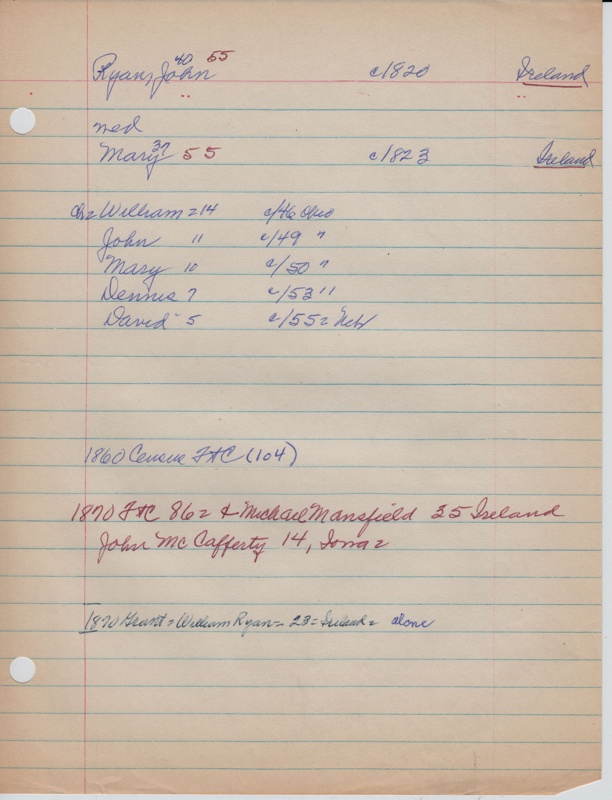 Ryan, John 40 55 c/1820 Ireland
med
Mary 37 55 c/1823 Ireland
ch= William = 14 c/46 Ohio
John 11 c/49 "
Mary 10 c/50 "
Dennis 7 c/53 "
David 5 c/55 = Neb
1860 Census FHC (104)
1870 FHC 86 = & Michael Mansfield 35 Ireland
John McCafferty 14, Iowa =
1870 Grant = William Ryan = 23 = Ireland = alone